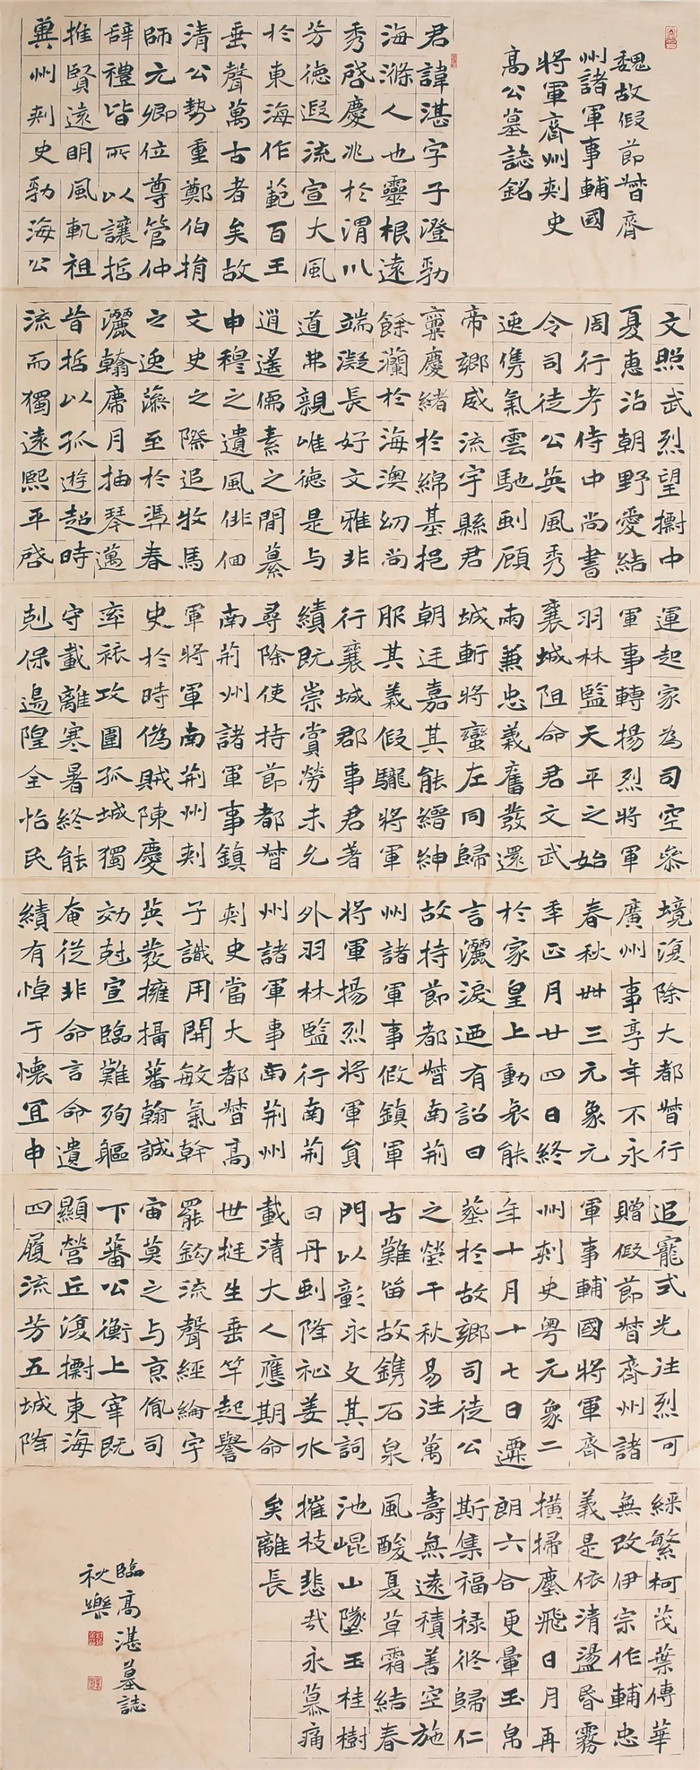 魏故假節督齊
州諸軍事輔國
將軍齊州刺史
高公墓誌銘
君諱湛字子澄勃
海滌人也靈根遠
秀啓慶兆於渭川
芳德遐流宣大風
於東海作範百王
垂聲萬古者矣故
清公勢重鄭伯捐
師元卿位尊管仲
辭禮皆所以讓哲
推賢遠明風軌祖
冀州刺史勃海公
文照武烈望㯹中
夏惠沾朝野愛結
周行考侍中尚書
令司徒公英風秀
逸儁氣雲馳剅顧
帝鄉威流宇縣君
稟慶緒於綿基挹
餘瀾於海澳幼尚
端凝長好文雅非
道弗親唯德是与
逍遙儒素之間纂
申穆之遺風俳佪
文史之際追牧馬
之逸藻至於馮春
灑翰席月抽琴邁
昔哲以孤遊超時
流而獨遠熙平啓
運起家為司空參
軍事轉揚烈將軍
羽林監天平之始
襄城阻命君文武
兩兼忠義奮發還
城斬將蠻左同歸
朝廷嘉其能縉紳
服其義假驃將軍
行襄城郡事君著
績既崇賞勞未允
尋除使持節都督
南荊州諸軍事鎮
軍將軍南荊州刺
史於時偽賊陳慶
率旅攻圍孤城獨
守載離寒暑終能
剋保邊隍全怡民
境復除大都督行
廣州事享年不永
春秋卌三元象元
年正月廿四日終
於家皇上動哀能
言灑淚迺有詔曰
故持節都督南荊
州諸軍事假鎮軍
將軍揚烈將軍員
外羽林監行南荊
州諸軍事南荊州
刺史當大都督高
子識用開敏氣幹
英發擁攝蕃翰誠
効尅宣臨難殉軀
奄從非命言命遺
績有悼于懷宜申
追寵式光往烈可
贈假節督齊州諸
軍事輔國將軍齊
州刺史粵元象二
年十月十七日遷
葬於故鄉司徒公
之塋千秋易往萬
古難留故鐫石泉
門以彰永久其詞
曰丹剅降祉姜水
載清大人應期命
世挺生垂竿起譽
罷鈎流聲經綸宇
宙莫之与京胤司
下蕃公衡上宰既
顯營丘復㯹東海
四履流芳五城降
綵繁柯茂葉傳華
無改伊宗作輔忠
義是依清盪昏霧
橫掃塵飛日月再
朗六合更暈玉帛
斯集福祿攸歸仁
壽無遠積善空施
風酸夏草霜結春
池崐山墜玉桂樹
摧枝悲哉永慕痛
矣離長
臨高湛墓誌
秋樂